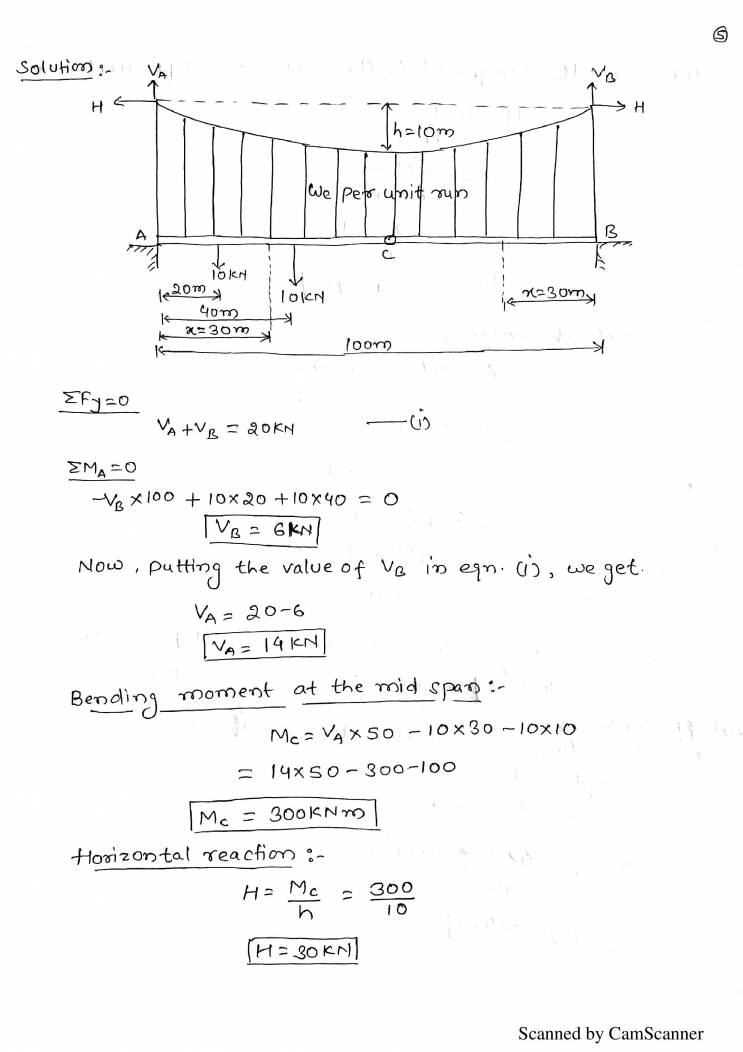 ⑤
Solution :-
V_A
V_B
H
H
h=10m
We per unit run
A
B
C
10KN
10KN
20m
40m
x=30m
x=30m
100m
ΣFy=0
V_A + V_B = 20KN —(i)
ΣM_A=0
-V_B × 100 + 10×20 + 10×40 = 0
V_B = 6KN
Now, putting the value of V_B in eqn. (i), we get.
V_A = 20-6
V_A = 14KN
Bending moment at the mid span :-
M_c = V_A × 50 - 10×30 - 10×10
= 14×50 - 300-100
M_c = 300KNm
Horizontal reaction :-
H = M_c/h = 300/10
H = 30KN
Scanned by CamScanner